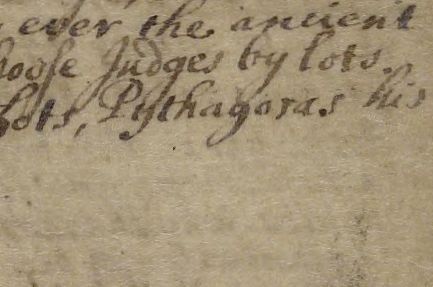 ever the ancient
hoose Judges by lots.
lots, Pythagoras his